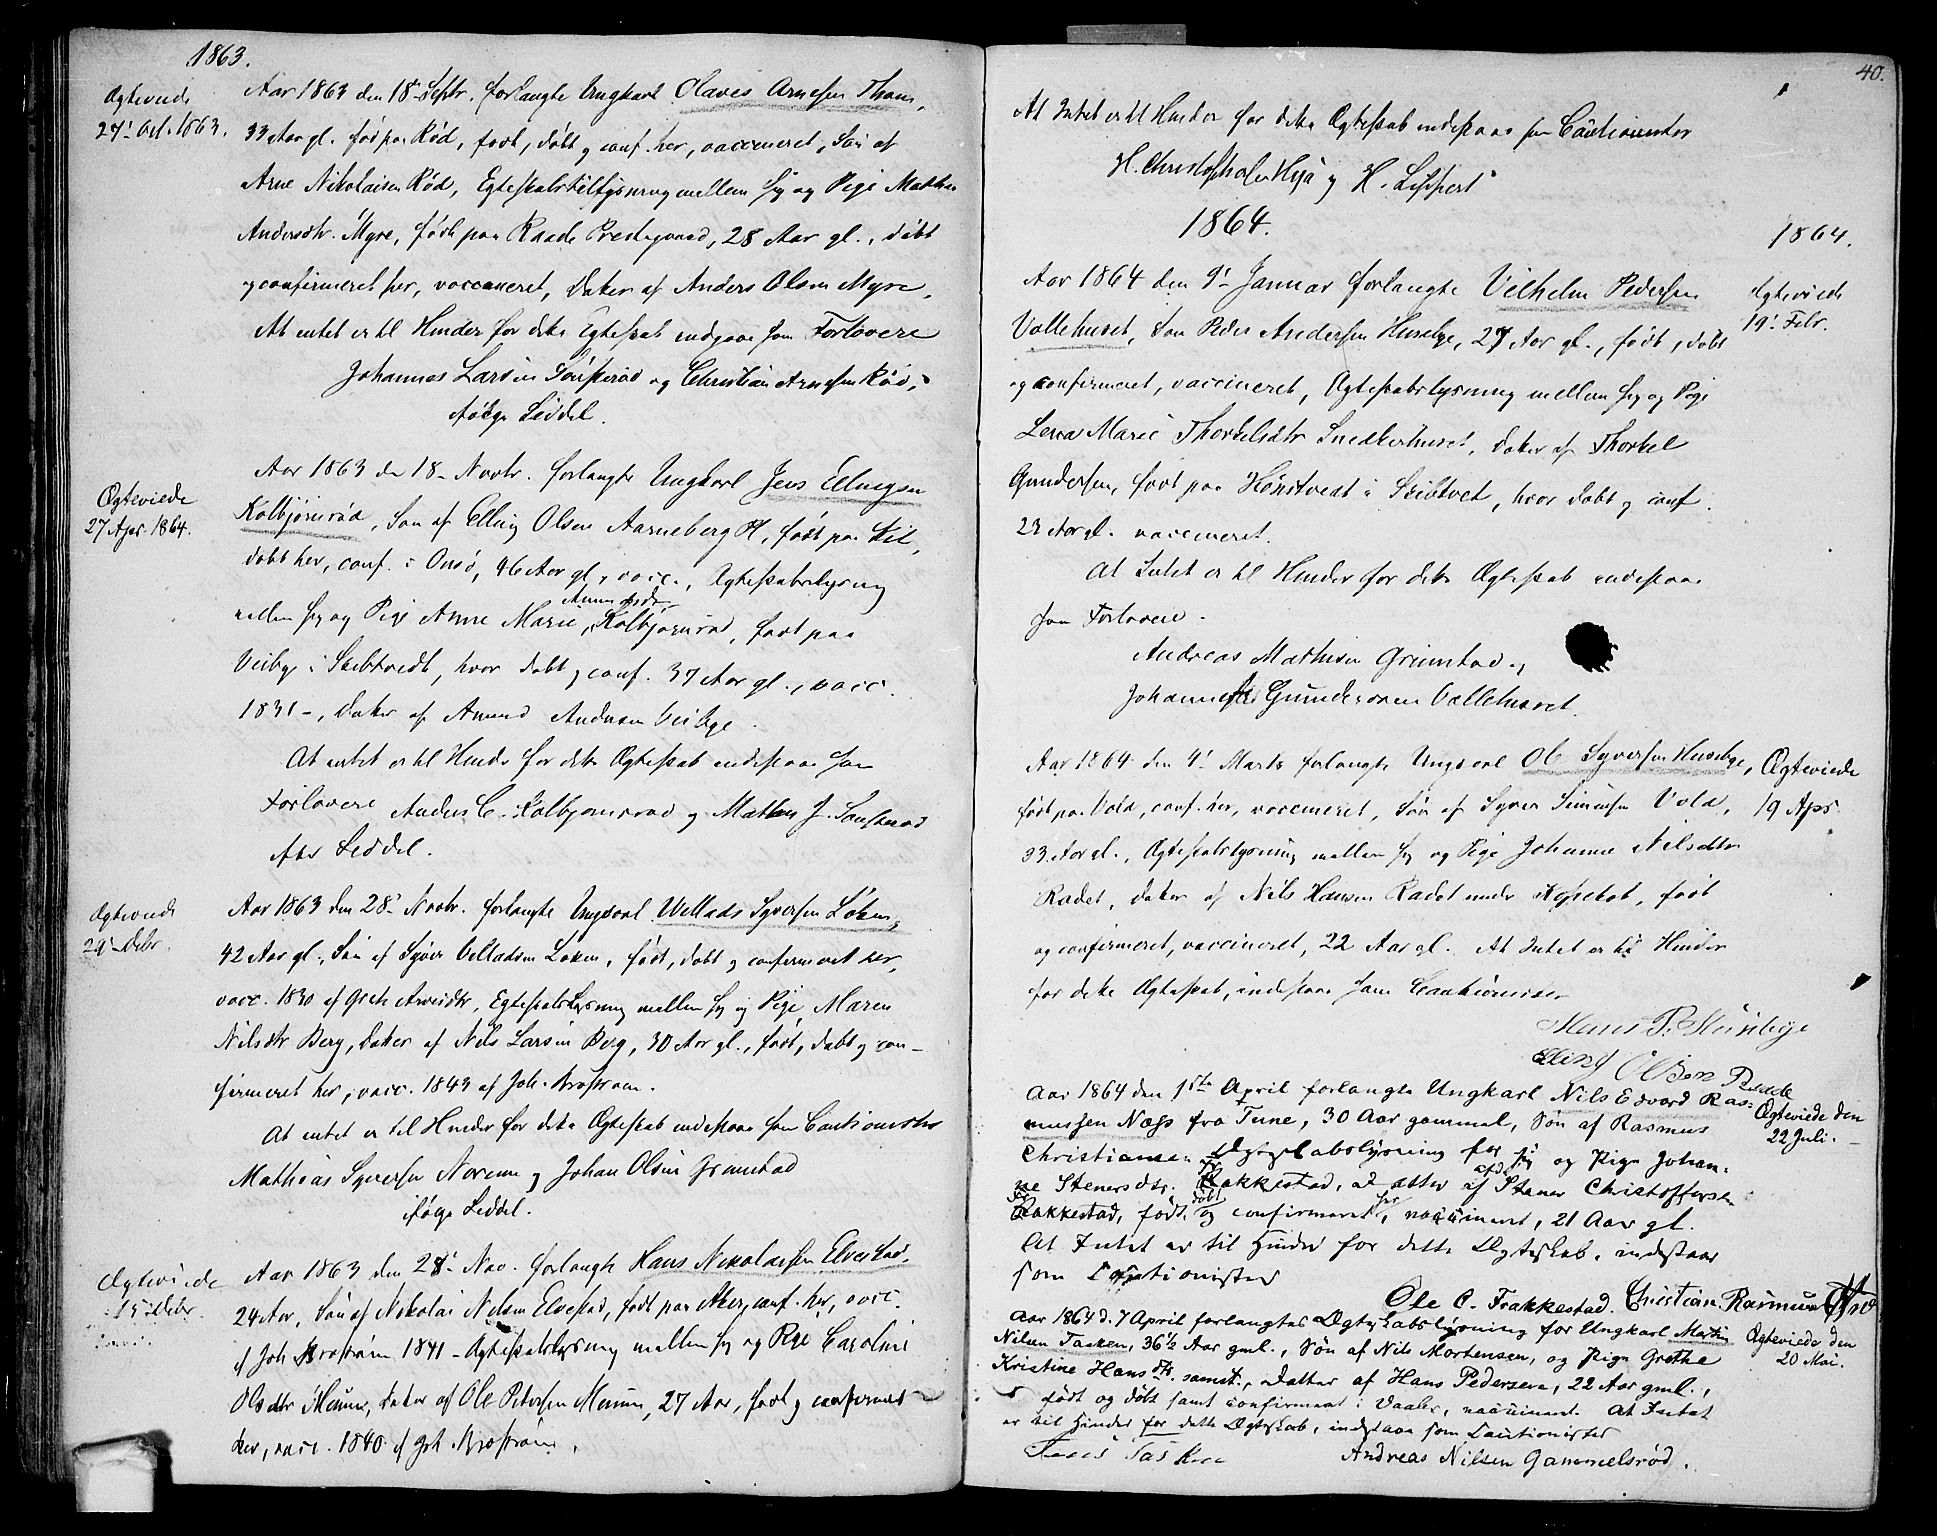 1863.
Ægteviede
27' Oct. 1863.
Aar 1863 den 18' Septr. forlangte Ungkarl Olaves Arnesen Thom,
33 Aar gl. født paa Rød, født, døbt og conf. her, vaccineret, Søn af
Arne Nikolaisen Rød, Egteskabs lysning mellem sig og Pige Mathea
Andersdtr. Myre, født paa Raade Prestegaard, 28 Aar gl., døbt
og confirmeret her, vaccineret, Datter af Anders Olsen Myre,
At intet er til Hinder for dette Egteskab indgaae som Forlovere
Johannes Larsen Sonskerød og Christian Arnesen Rød,
ifølge Seddel.
Ægteviede
27 Apr. 1864.
Aar 1863 den 18 Novbr. forlangte Ungkarl Jens Ellingsen
Kolbjørnrød, Søn af Elling Olsen Aarneberg, født paa
døbt her, conf. i Onsø, 46 Aar gl., vacc., Ægteskabslysning
mellem sig og Pige Anne Marie Amundsdr Kolbjørnrød, født paa
Veibye i Skibtvedt, hvor døbt og conf. 37 Aar gl., vacc.
1831 -, Datter af Amund Andersen Veibye.
At intet er til Hinder for dette Ægteskab indestaae som
Forlovere Anders C. Kolbjørnsrød og Mathis J. Sonskerød
efter Seddel.
Ægteviede
29' Debr.
Aar 1863 den 28' Novbr. forlangte Ungkarl Vellads Syversen Løken,
42 Aar gl., Søn af Syver Velladsen Løken, født, døbt og confirmeret her,
vacc. 1830 af Grete Arvesdtr, Egteskabslysning mellem sig og Pige Maren
Nilsdtr Berg, Datter af Nils Larsen Berg, 30 Aar gl., født, døbt og con-
firmeret her, vacc. 1843 af Joh. Brostrøm.
At intet er til Hinder for dette Ægteskab indestaae som Cautionister
Mathias Syversen Norum og Johan Olsen Grimstad
ifølge Seddel.
Ægteviede
15' Debr.
Aar 1863 den 28' Nov. forlangte Hans Nikolaisen Elvestad,
24 Aar, Søn af Nikolai Nilsen Elvestad, født paa Aker, conf. her, vacc.
af Joh. Brostrøm 1841 - Ægteskabslysning mellem sig og Pige Caroline
Olsdtr Menum, Datter af Ole Petersen Menum, 27 Aar, født og confirmeret
her, vacc. 1840 af Joh. Brostrøm.
40.
At Intet er til Hinder for dette Ægteskab indestaae som Cautionister
H. Christophersen og H. Lippert
1864.
1864.
Aar 1864 den 9' Januar forlangte Vilhelm Pedersen
Vallehuset, Søn Peder Andersen Husebye, 27 Aar gl., født, døbt
og confirmeret, vaccineret, Ægteskabslysning mellem sig og Pige
Lena Marie Thorkelsdtr Snedkerhuset, Datter af Thorkel
Gundersen, født paa Hønstvedt i Skibtvet, hvor døbt og conf.
23 Aar gl. vaccineret.
At Intet er til Hinder for dette Ægteskab indestaae
som Forlovere.
Andreas Mathisen Grimstad og
Johannes Gundersen Vallehuset.
Ægteviede
19' Febr.
Aar 1864 den 4' Marts forlangte Ungkarl Ole Syversen Husebye,
født paa Vold, conf. her, vaccineret, Søn af Syver Simensen Vold,
33 Aar gl., Ægteskabslysning mellem sig og Pige Johanne Nilsdtr
Rødet, Datter af Nils Hansen Rødet under Aspestøt, født
og confirmeret, vaccineret, 22 Aar gl. At Intet er til Hinder
for dette Ægteskab, indestaae som Cautionister
Hans P. Husebye
Elling Olsen Raade
Ægteviede
19 Apr.
Aar 1864 den 1ste April forlangte Ungkarl Nils Edvard Ras-
mussen Næss fra Tune, 30 Aar gammel, Søn af Rasmus
Christiansen Ægteskabslysning for sig og Pige Johan-
ne Stenersdtr. Frakkestad, datter af Stener Christoffersen
Frakkestad, født, døbt og confirmeret her, vaccineret, 21 Aar gl.
At Intet er til Hinder for dette Ægteskab, indestaar
som Cautionister
Ole C. Frakkestad. Christian Rasmussen
Ægteviede den
22 Juli.
Aar 1864 d. 7 April forlangtes Ægteskabslysning for Ungkarl Martin
Nilsen Tasken, 36½ Aar gml., Søn af Nils Mortensen, og Pige Grethe
Kristine Hansdtr. samst., Datter af Hans Pedersen, 22 Aar gml.,
født og døbt samt confirmeret i Vaaler, vaccineret. At Intet
er til Hinder for dette Ægteskab, indestaae som Cautionister
Tasken Andreas Nilsen Gammelsrød.
Ægteviede den
20 Mai.